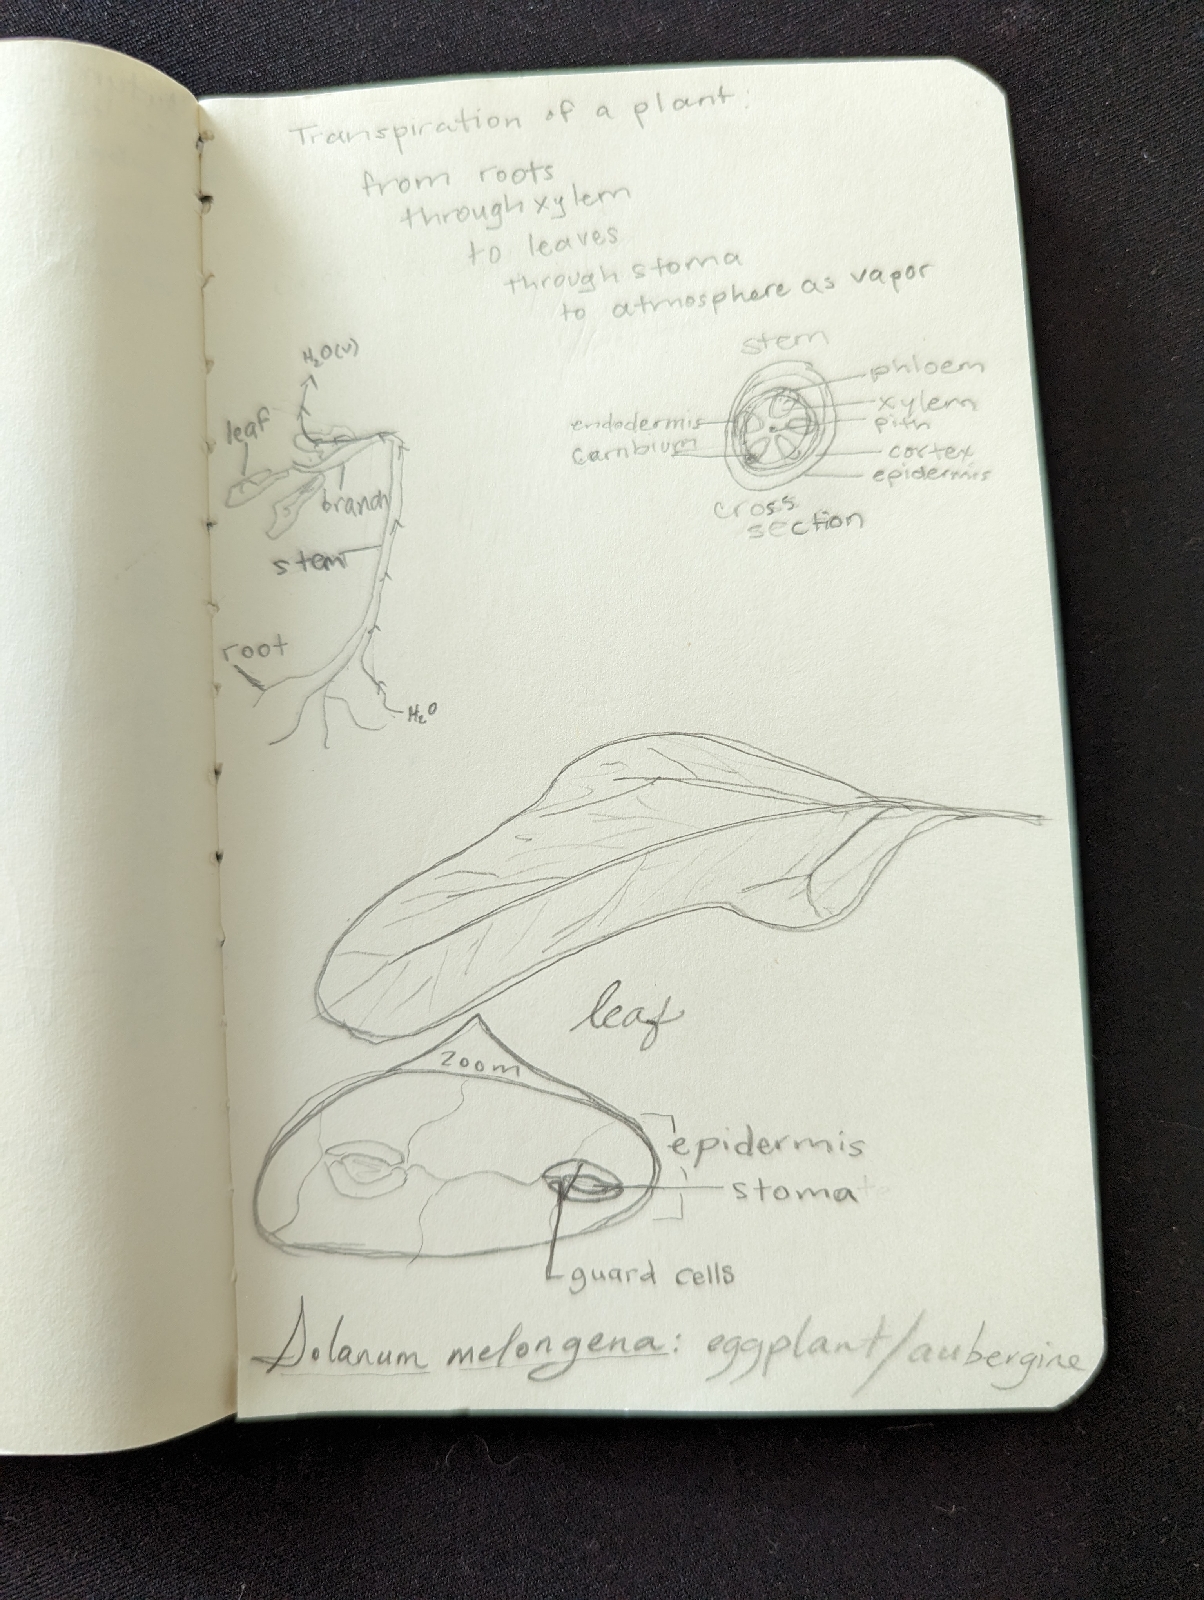 Transpiration of a plant:
from roots
through xylem
to leaves
through stoma
to atmosphere as vapor
H2O(v)
leaf
branch
stem
root
H2O
stem
phloem
xylem
pith
cortex
epidermis
endodermis
cambium
cross
section
leaf
zoom
epidermis
stoma
guard cells
Solanum melongena: eggplant/aubergine